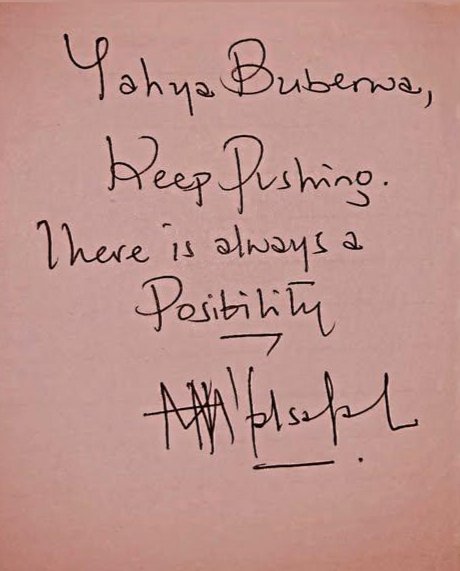 Yahya Buberwa,
Keep Pushing.
There is always a
Posibility